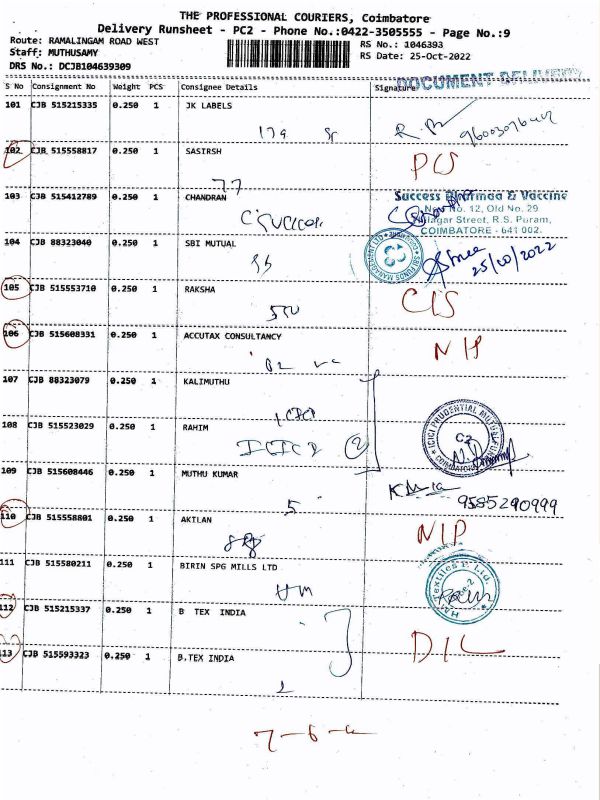 THE PROFESSIONAL COURIERS, Coimbatore
Delivery Runsheet - PC2 - Phone No.:0422-3505555 - Page No.:9
Route: RAMALINGAM ROAD WEST
RS No.: 1046393
Staff: MUTHUSAMY
RS Date: 25-Oct-2022
DRS No.: DCJB104639309
DOCUMENT DELIVERY
S No Consignment No Weight PCS Consignee Details Signature
101 CJB 515215335 0.250 1 JK LABELS
102 CJB 515558817 0.250 1 SASIRSH
PCS
103 CJB 515412789 0.250 1 CHANDRAN
77
Success Pharmaa & Vaccine
No. 12, Old No. 29
Street, R.S. Puram,
COIMBATORE - 641 002.
104 CJB 88323040 0.250 1 SBI MUTUAL
SBI FUNDS MANAGEMENT LTD
25/10/2022
105 CJB 515553710 0.250 1 RAKSHA
CIS
106 CJB 515608331 0.250 1 ACCUTAX CONSULTANCY
NIP
107 CJB 88323079 0.250 1 KALIMUTHU
ICICI
108 CJB 515523029 0.250 1 RAHIM
2
ICICI PRUDENTIAL MUTUAL FUND
COIMBATORE
109 CJB 515608446 0.250 1 MUTHU KUMAR
5
9585290999
110 CJB 515558801 0.250 1 AKILAN
NIP
111 CJB 515580211 0.250 1 BIRIN SPG MILLS LTD
HM
HM Textiles P. Ltd.
112 CJB 515215337 0.250 1 B TEX INDIA
113 CJB 515593323 0.250 1 B.TEX INDIA
DIL